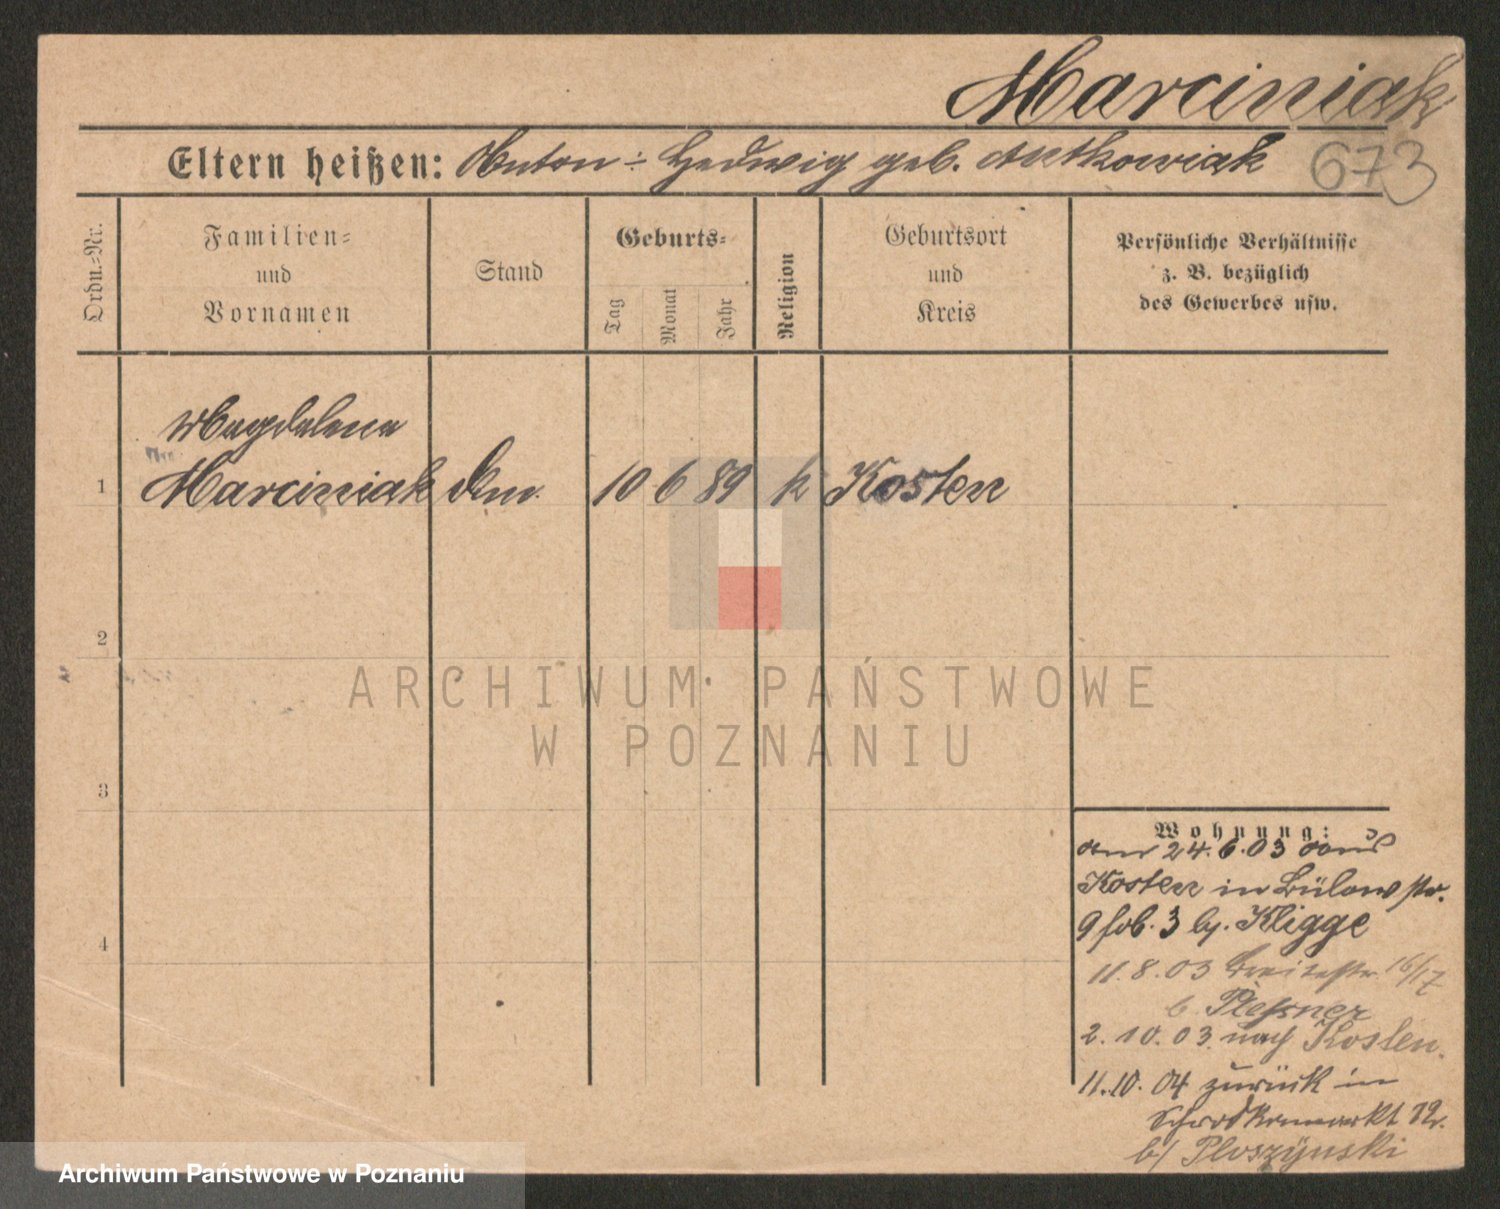 Marciniak
Eltern heißen: Anton ÷ Hedwig geb. Antkowiak 673
Ordn.=Nr.
Familien=
und
Vornamen
Stand
Geburts=
Tag
Monat
Jahr
Religion
Geburtsort
und
Kreis
Persönliche Verhältnisse
z. B. bezüglich
des Gewerbes usw.
Magdalena
1 Marciniak 10 6 89 k Kosten
2
3
4
Wohnung:
am 24.6.03 aus
Kosten in Bülowstr.
9 3 b. Kligge
11.8.03 Breitestr. 16/17
b. Plessner
2.10.03. nach Kosten.
11.10.04 zurück in
Schrodkamarkt
b/ Ploszynski
ARCHIWUM PAŃSTWOWE
W POZNANIU
Archiwum Państwowe w Poznaniu